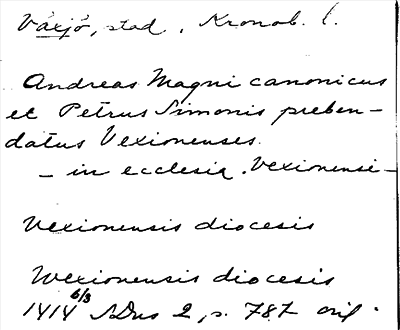 Växjö, stad, Kronob. l.
Andreas Magni canonicus
et Petrus Simonis preben-
datus Vexionenses.
– in ecclesia Vexionensi –
Vexionensis diocesis
Wexionensis diocesis
1414 6/3 SDns 2, s. 787 orig.